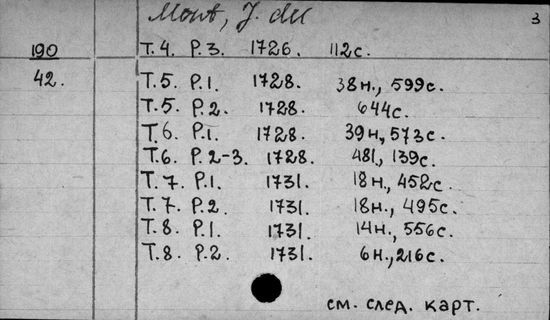 Mont, J. du 3
190 Т.4. Р.3. 1726. 112с.
42. Т.5. Р.1. 1728. 38н., 599с.
Т.5. Р.2. 1728. 644с.
Т.6. Р.1. 1728. 39н, 573с.
Т.6. Р.2-3. 1728. 481, 139с.
Т.7. Р.1. 1731. 18н., 452с.
Т.7. Р.2. 1731. 18н., 495с.
Т.8. Р.1. 1731. 14н., 556с.
Т.8. Р.2. 1731. 6н., 216с.
см. след. карт.